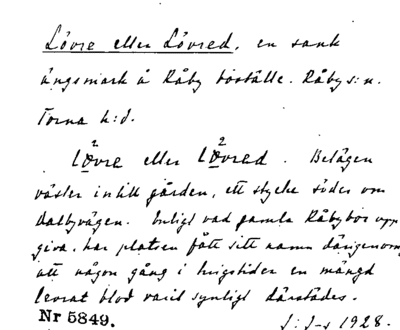 Lövre eller Lövred, en sank
ängsmark å Råby boställe. Råby s:n.
Torna h:d.
Lövre eller Lövred. Belägen
väster intill gården, ett stycke söder om
Dalbyvägen. Enligt vad gamla Råbybor upp
giva, har platsen fått sitt namn därigenom
att någon gång i krigstiden en mängd
levrat blod varit synligt därstädes.
Nr 5849.
1928.